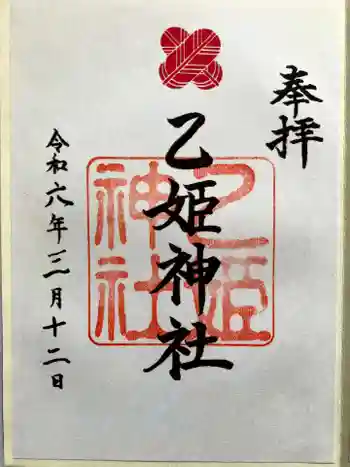 奉拝
乙姫神社
乙姫
神社
令和六年三月十二日